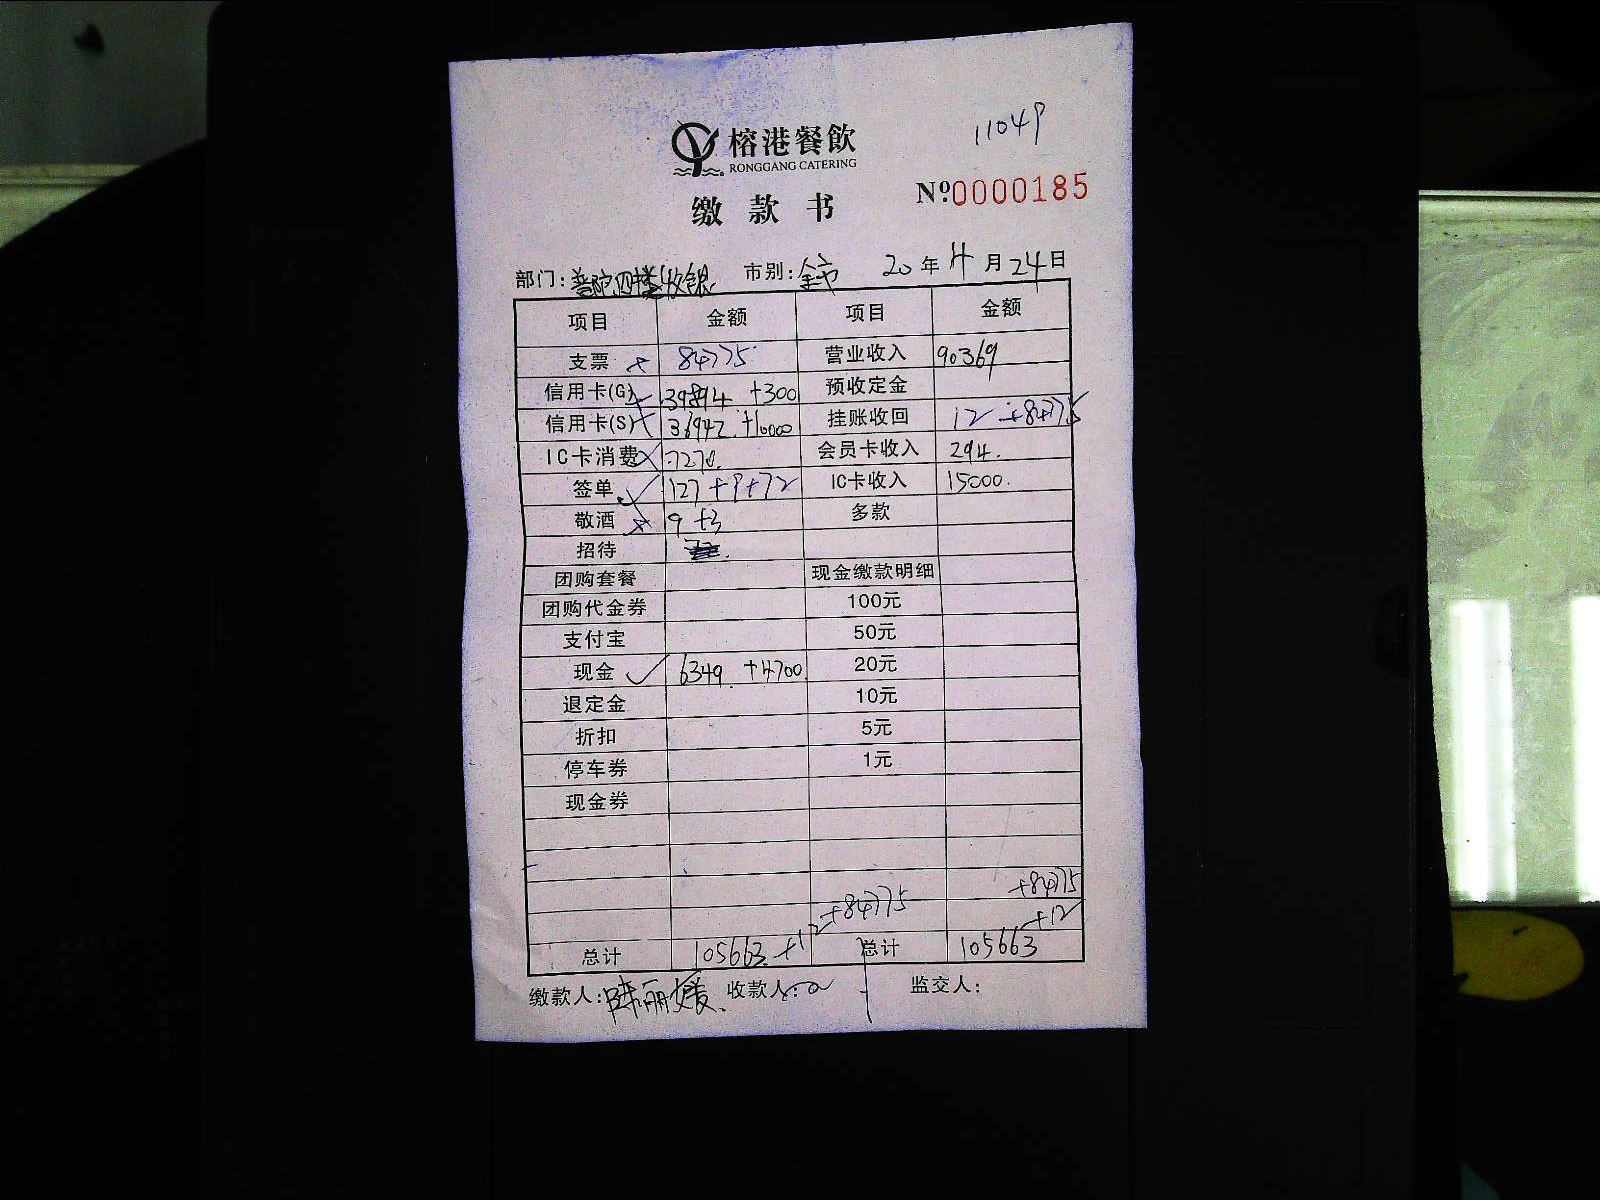 11049
榕港餐飲
RONGGANG CATERING
缴款书
Nº0000185
部门:普陀四楼收银 市别:全市 20年4月24日
项目 金额 项目 金额
支票 84775 营业收入 90369
信用卡(G) 39894 +300 预收定金
信用卡(S) 36942 +10000 挂账收回 12 +84775
IC卡消费 7270. 会员卡收入 294.
签单 127+9+72 IC卡收入 15000.
敬酒 9+3 多款
招待
团购套餐 现金缴款明细
团购代金券 100元
支付宝 50元
现金 6349 +4700 20元
退定金 10元
折扣 5元
停车券 1元
现金券
+84775 +84775
总计 105663.+12 总计 105663 +12
缴款人:陆丽媛. 收款人: 监交人: